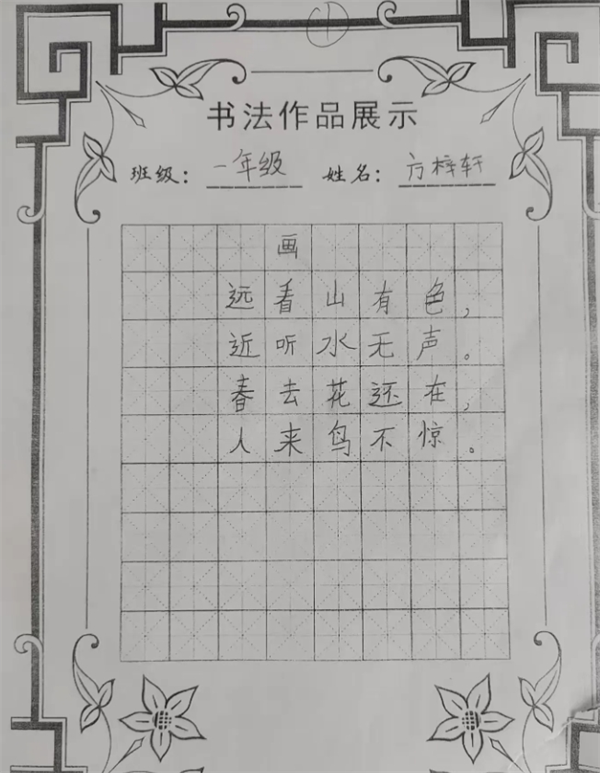 ①
书法作品展示
班级：一年级 姓名：方梓轩
画
远看山有色，
近听水无声。
春去花还在，
人来鸟不惊。